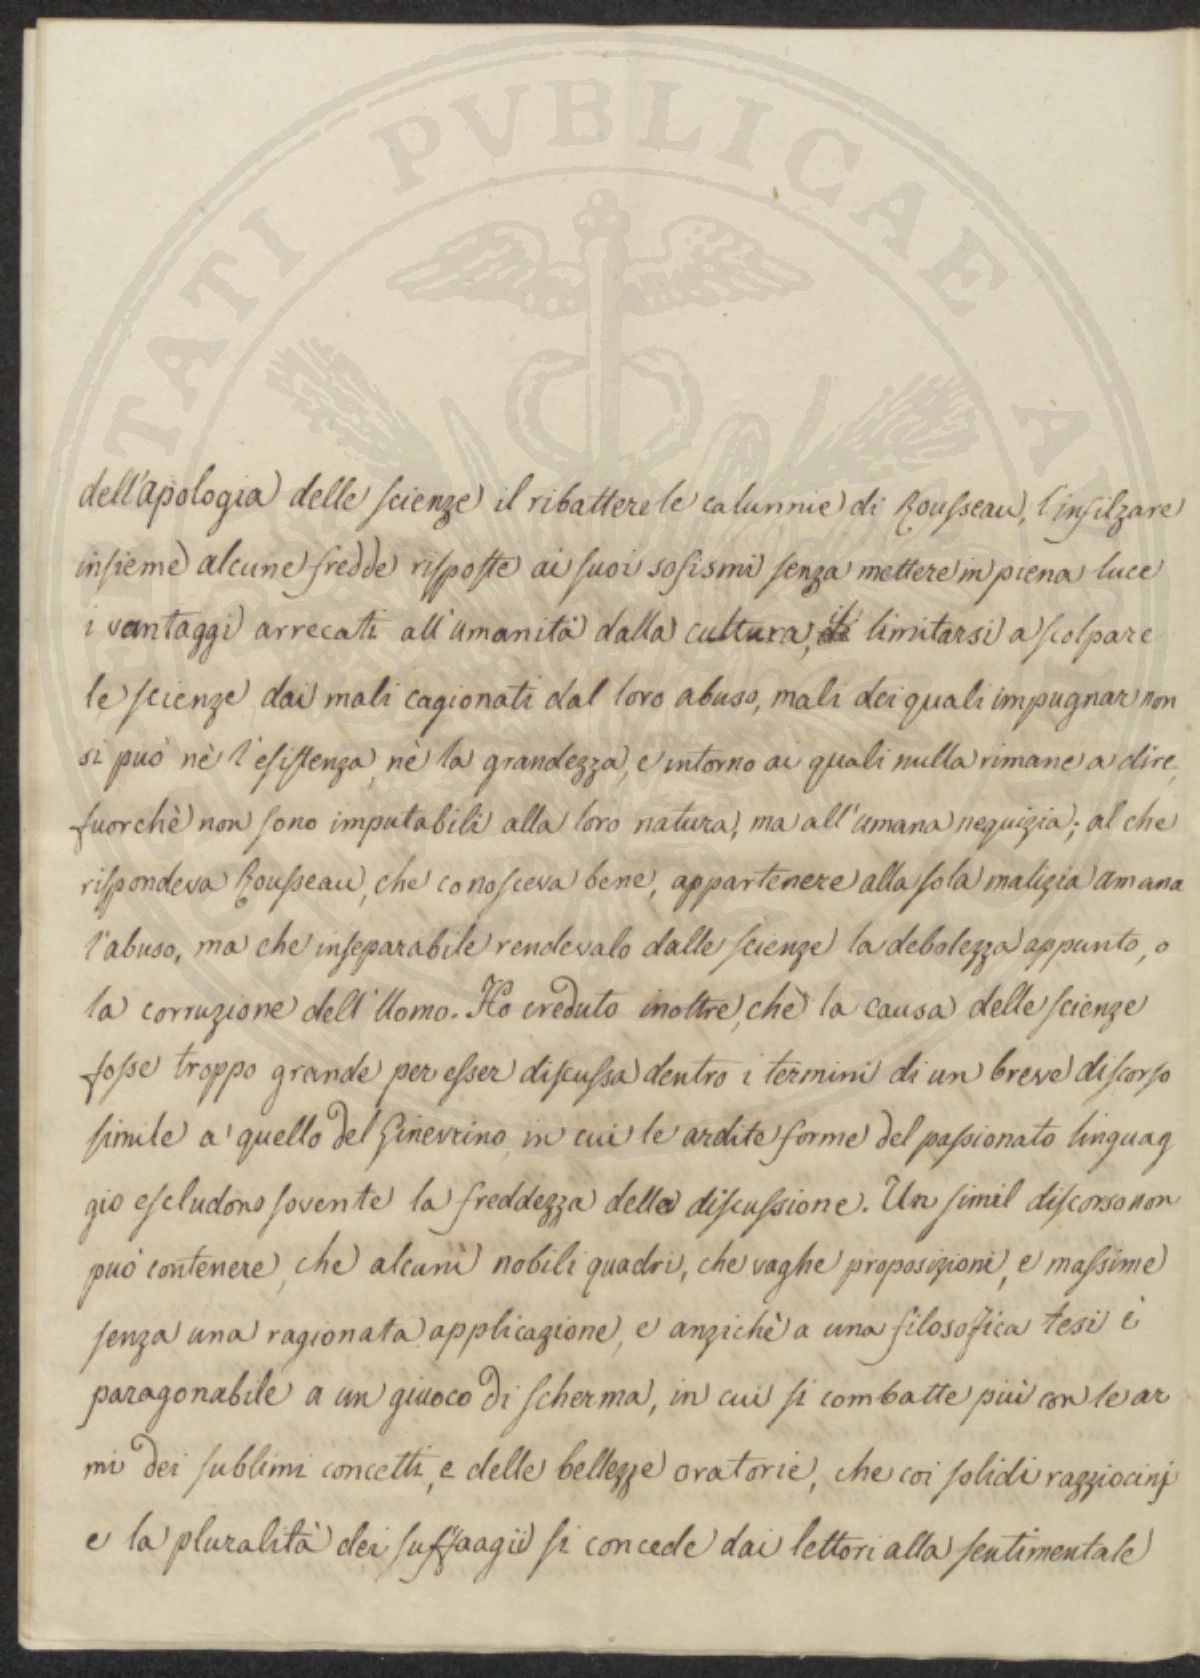 TATI PVBLICAE A
dell'apologia delle scienze il ribattere le calunnie di Rousseau, l'infilzare
insieme alcune fredde risposte ai suoi sofismi senza mettere in piena luce
i vantaggi arrecati all'umanità dalla cultura, il limitarsi a scolpare
le scienze dai mali cagionati dal loro abuso, mali dei quali impugnar non
si può nè l'esistenza, nè la grandezza, e intorno ai quali nulla rimane a dire,
fuorchè non sono imputabili alla loro natura, ma all'umana nequizia; al che
rispondeva Rousseau, che conosceva bene, appartenere alla sola malizia umana
l'abuso, ma che inseparabile rendevalo dalle scienze la debolezza appunto, o
la corruzione dell'Uomo. Ho creduto inoltre, che la causa delle scienze
fosse troppo grande per esser discussa dentro i termini di un breve discorso
simile a quello del Ginevrino, in cui le ardite forme del passionato linguag
gio escludono sovente la freddezza della discussione. Un simil discorso non
può contenere, che alcuni nobili quadri, che vaghe proposizioni, e massime
senza una ragionata applicazione, e anzichè a una filosofica tesi è
paragonabile a un giuoco di scherma, in cui si combatte più con le ar
mi dei sublimi concetti, e delle bellezze oratorie, che coi solidi razziocinj
e la pluralità dei suffragii si concede dai lettori alla sentimentale